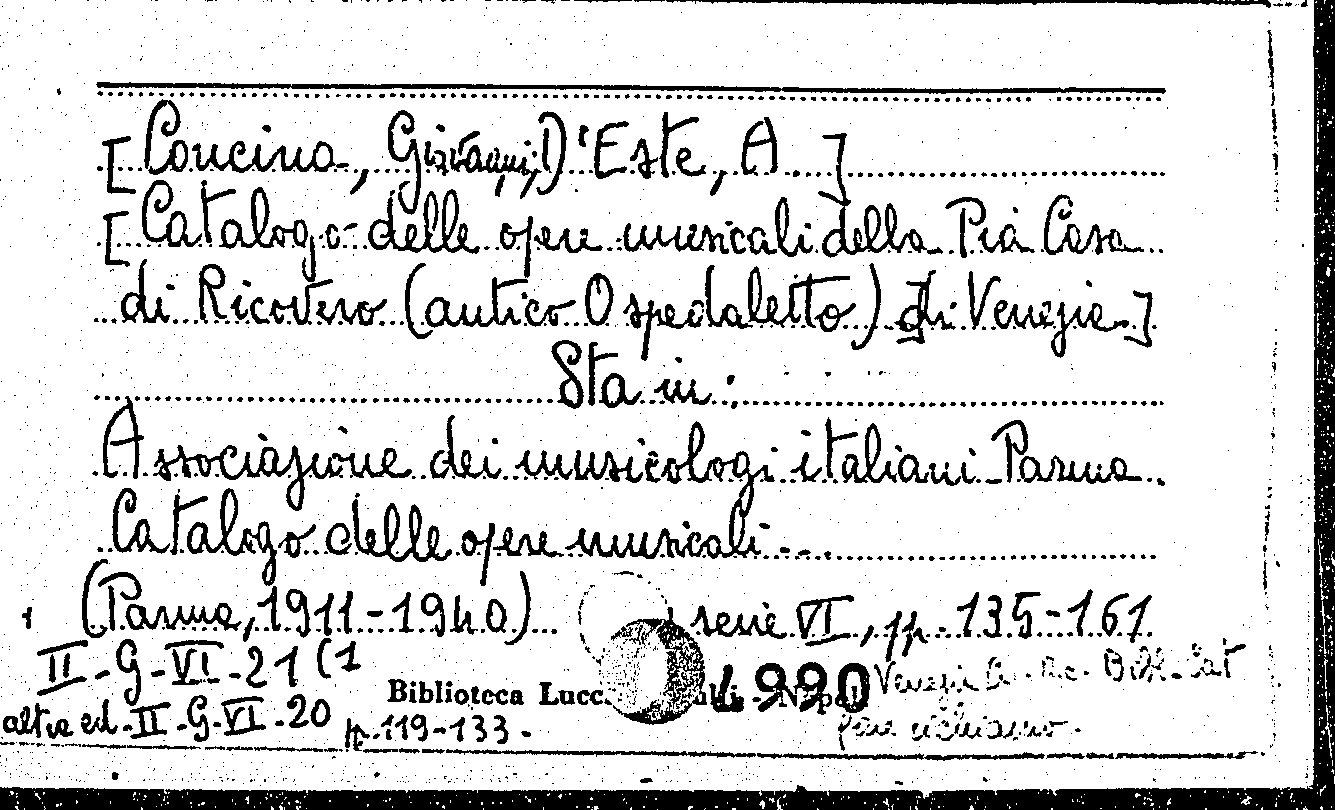 [Concina, Giovanni, D'Este, A.]
[Catalogo delle opere musicali della Pia Casa
di Ricovero (antico Ospedaletto) di Venezia.]
Sta in:
Associazione dei musicologi italiani Parma.
Catalogo delle opere musicali...
(Parma, 1911-1940) serie VI, pp. 135-161
II-G-VI-21 (1
Biblioteca Lucc - Napoli 4990 Venezia
altra ed. II-G-VI-20 pp. 119-133.